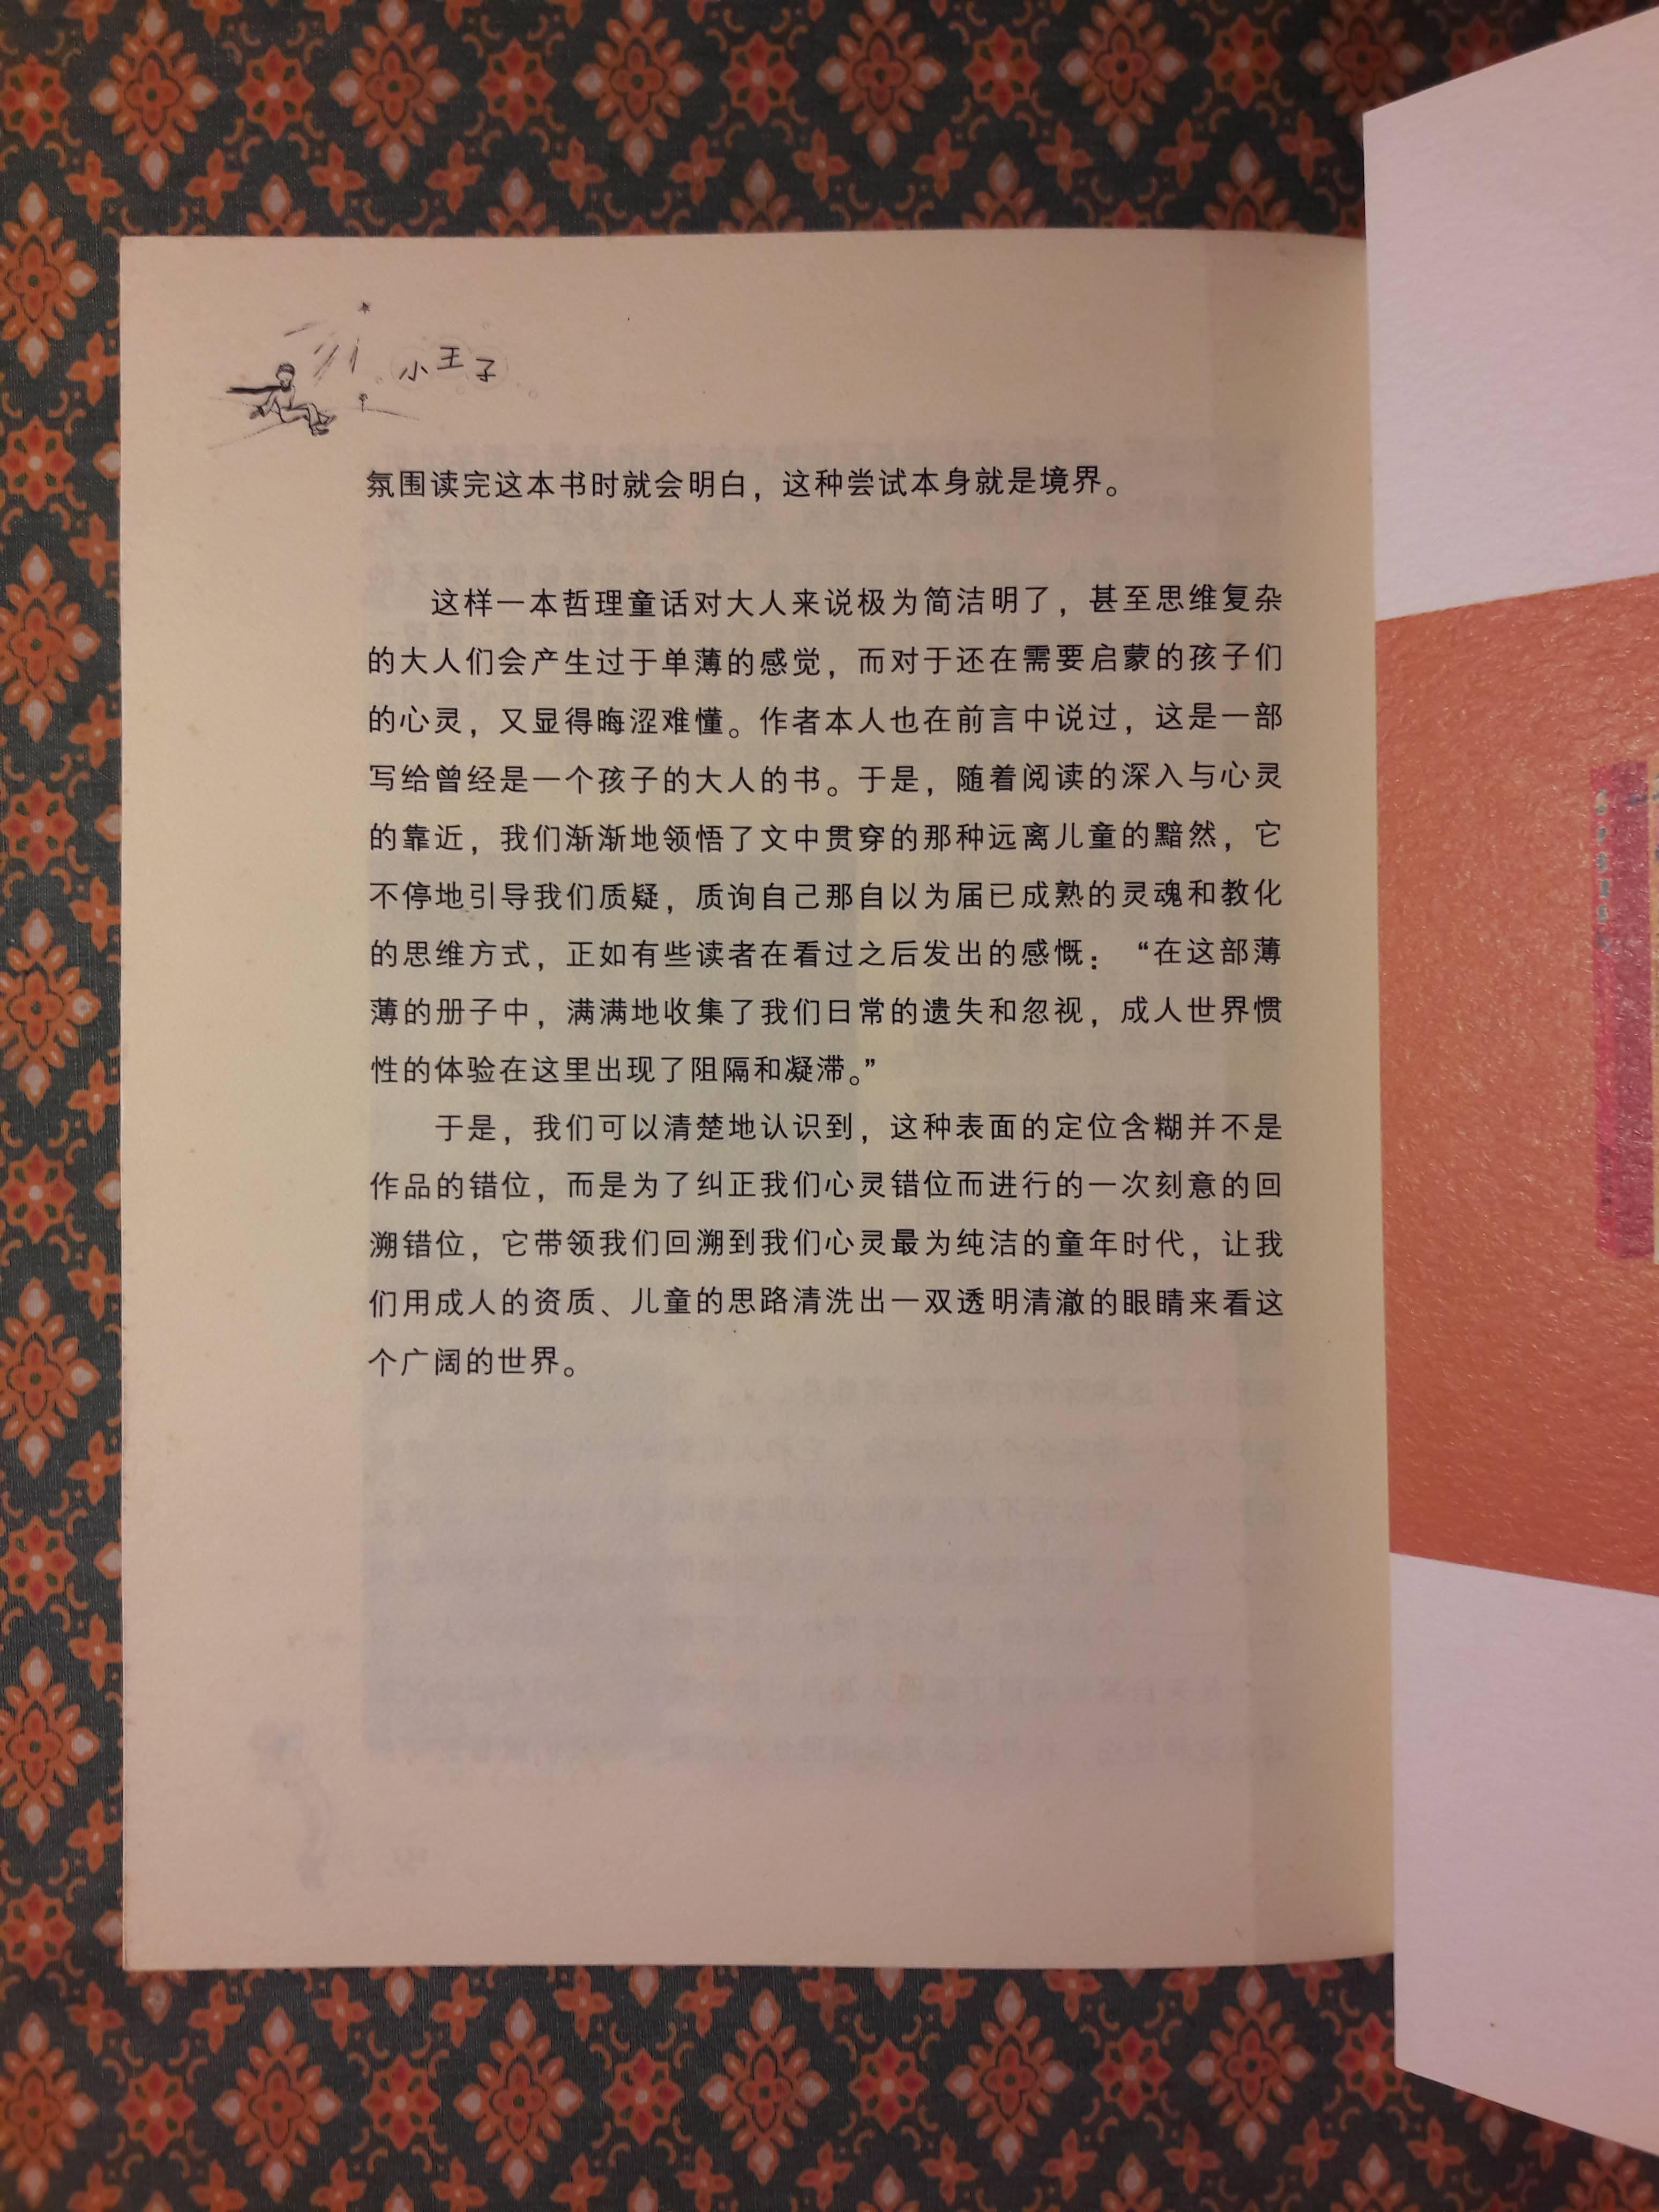 小王子
氛围读完这本书时就会明白，这种尝试本身就是境界。
这样一本哲理童话对大人来说极为简洁明了，甚至思维复杂
的大人们会产生过于单薄的感觉，而对于还在需要启蒙的孩子们
的心灵，又显得晦涩难懂。作者本人也在前言中说过，这是一部
写给曾经是一个孩子的大人的书。于是，随着阅读的深入与心灵
的靠近，我们渐渐地领悟了文中贯穿的那种远离儿童的黯然，它
不停地引导我们质疑，质询自己那自以为届已成熟的灵魂和教化
的思维方式，正如有些读者在看过之后发出的感慨：“在这部薄
薄的册子中，满满地收集了我们日常的遗失和忽视，成人世界惯
性的体验在这里出现了阻隔和凝滞。”
于是，我们可以清楚地认识到，这种表面的定位含糊并不是
作品的错位，而是为了纠正我们心灵错位而进行的一次刻意的回
溯错位，它带领我们回溯到我们心灵最为纯洁的童年时代，让我
们用成人的资质、儿童的思路清洗出一双透明清澈的眼睛来看这
个广阔的世界。